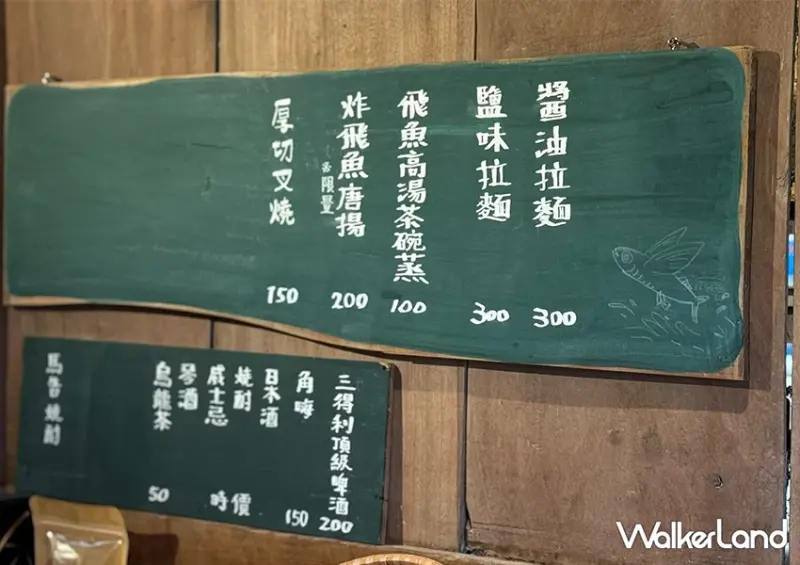 醬油拉麵 300
鹽味拉麵 300
飛魚高湯茶碗蒸 100
炸飛魚唐揚 200
※限量
厚切叉燒 150
三得利頂級啤酒 200
角嗨 150
日本酒
燒酎
威士忌
琴酒
時價
烏龍茶 50
馬告燒酎
WalkerLand